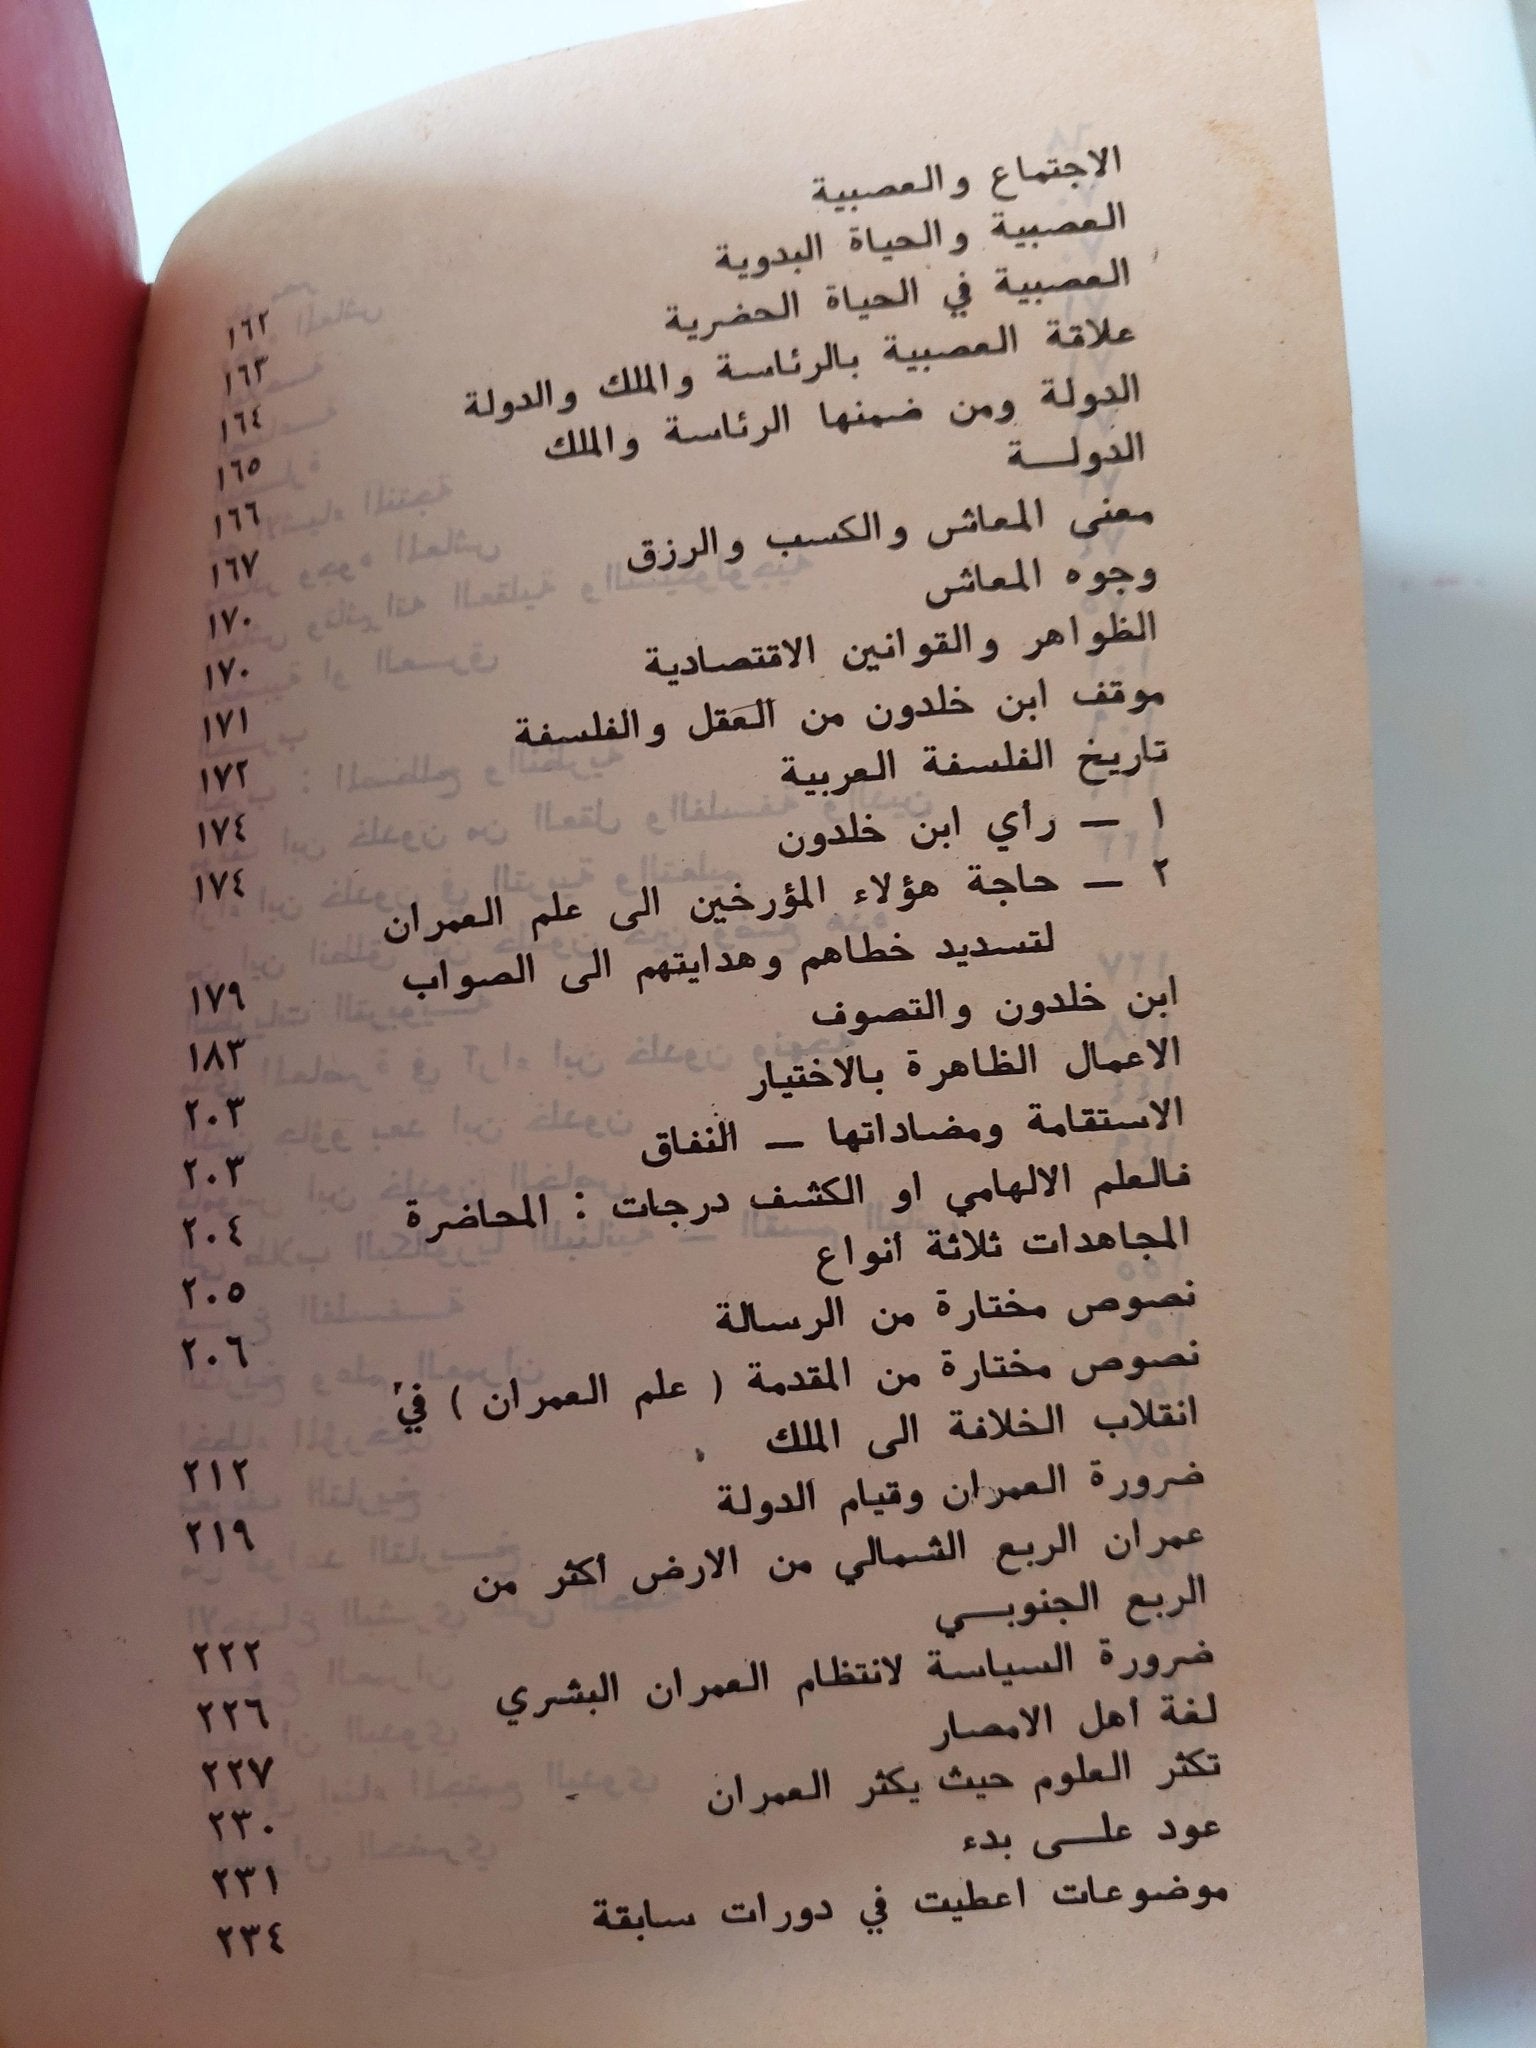 الاجتماع والعصبية ١٦٢
العصبية والحياة البدوية ١٦٣
العصبية في الحياة الحضرية ١٦٤
علاقة العصبية بالرئاسة والملك والدولة ١٦٥
الدولة ومن ضمنها الرئاسة والملك ١٦٦
الدولــة ١٦٧
معنى المعاش والكسب والرزق ١٧٠
وجوه المعاش ١٧٠
الظواهر والقوانين الاقتصادية ١٧١
موقف ابن خلدون من العقل والفلسفة ١٧٢
تاريخ الفلسفة العربية ١٧٤
١ — رأي ابن خلدون ١٧٤
٢ — حاجة هؤلاء المؤرخين الى علم العمران
لتسديد خطاهم وهدايتهم الى الصواب ١٧٩
ابن خلدون والتصوف ١٨٣
الاعمال الظاهرة بالاختيار ٢٠٣
الاستقامة ومضاداتها — النفاق ٢٠٣
فالعلم الالهامي او الكشف درجات : المحاضرة ٢٠٤
المجاهدات ثلاثة أنواع ٢٠٥
نصوص مختارة من الرسالة ٢٠٦
نصوص مختارة من المقدمة ( علم العمران ) في
انقلاب الخلافة الى الملك ٢١٢
ضرورة العمران وقيام الدولة ٢١٩
عمران الربع الشمالي من الارض أكثر من
الربع الجنوبــي ٢٢٢
ضرورة السياسة لانتظام العمران البشري ٢٢٦
لغة أهل الامصار ٢٢٧
تكثر العلوم حيث يكثر العمران ٢٣٠
عود علــى بدء ٢٣١
موضوعات اعطيت في دورات سابقة ٢٣٤